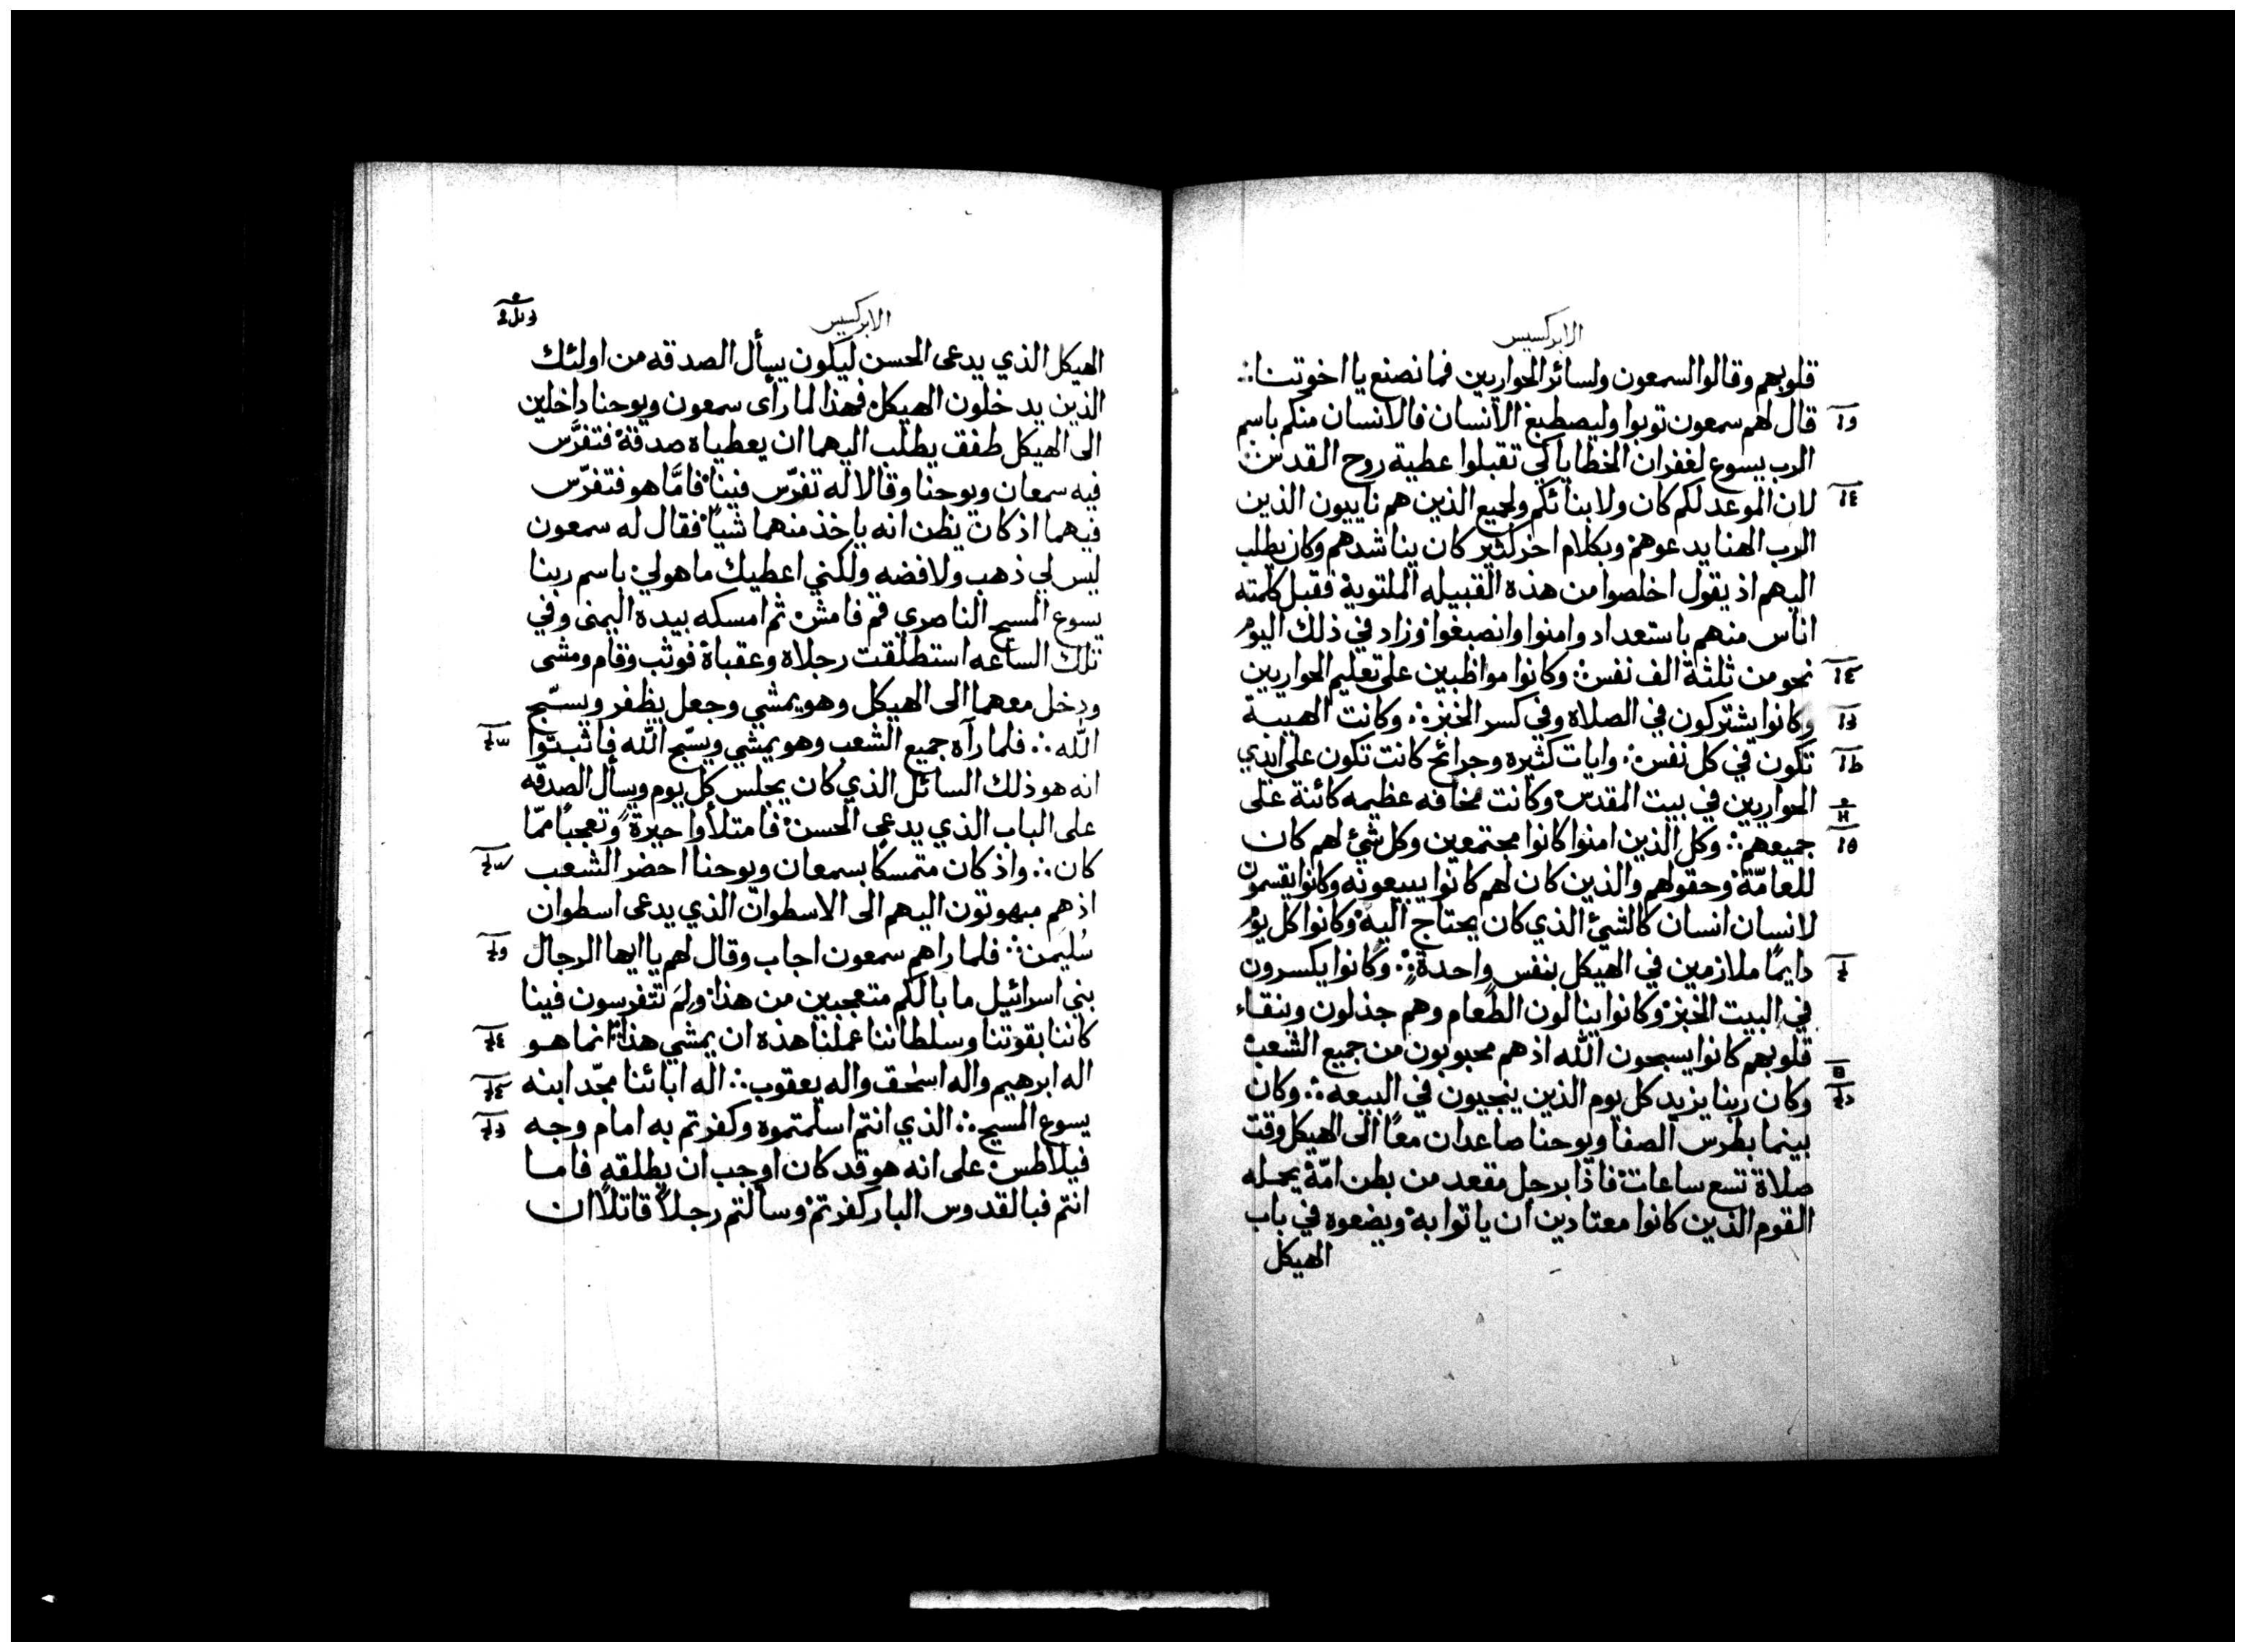 الابركسيس
قلوبهم وقالوا لسمعون ولسائر الحواريين فما نصنع يا اخوتنا ∴
قال لهم سمعون توبوا وليصطبغ الانسان فالانسان منكم باسم
الرب يسوع لغفران الخطايا كي تقبلوا عطية روح القدس ∴
لان الموعد لكم كان ولابنائكم ولجميع الذين هم نآييون الذين
الرب الهنا يدعوهم وبكلام اخر كثير كان يناشدهم وكان يطلب
اليهم اذ يقول اخلصوا من هذه القبيله الملتوية فقبل كلمته
اناس منهم باستعداد وامنوا وانصبغوا وزاد في ذلك اليوم
نحو من ثلثة الف نفس ∴ وكانوا مواظبين على تعليم الحواريين
وكانوا يشتركون في الصلاة وفي كسر الخبز ∴ وكانت الهيبة
تكون في كل نفس ∴ وايات كثيره وجرائح كانت تكون على ايدي
الحواريين في بيت المقدس وكانت مخافه عظيمه كائنة على
جميعهم ∴ وكل الذين امنوا كانوا مجتمعين وكل شئ لهم كان
للعامّة وحقولهم والذين كان لهم كانوا يبيعونه وكانوا يقسمون
لانسان انسان كالشئ الذي كان يحتاج اليه وكانوا كل يوم
دايمًا ملازمين في الهيكل بنفس واحدة ∴ وكانوا يكسرون
في البيت الخبز وكانوا ينالون الطعام وهم جذلون وبنقاء
قلوبهم كانوا يسبحون الله اذ هم محبوبون من جميع الشعب
وكان ربنا يزيد كل يوم الذين ينجيون في البيعه ∴ وكان
بينما بطرس الصفا ويوحنا صاعدان معًا الى الهيكل وقت
صلاة تسع ساعات فاذا برجل مقعد من بطن امّه يحمله
القوم الذين كانوا معتادين ان ياتوا به ويضعوه في باب
الهيكل
الابركسيس
الهيكل الذي يدعى الحسن ليكون يسأل الصدقه من اولئك
الذين يدخلون الهيكل فهذا لما رأى سمعون ويوحنا داخلين
الى الهيكل طفق يطلب اليهما ان يعطياه صدقة فتفرّس
فيه سمعان ويوحنا وقالا له تفرّس فينا فامّا هو فتفرّس
فيهما اذ كان يظن انه ياخذ منهما شيًا فقال له سمعون
ليس لي ذهب ولا فضه ولكني اعطيك ما هو لي باسم ربنا
يسوع المسيح الناصري قم فامش ثم امسكه بيده اليمنى وفي
تلك الساعه استطلقت رجلاه وعقباه فوثب وقام ومشى
ودخل معهما الى الهيكل وهو يمشي وجعل يظفر ويسبّح
الله ∴ فلما رآه جميع الشعب وهو يمشي ويسبّح الله فاثبتوا
انه هو ذلك السائل الذي كان يجلس كل يوم ويسأل الصدقه
على الباب الذي يدعى الحسن فامتلأوا حيرةً وتعجبًا ممّا
كان ∴ واذ كان متمسكًا بسمعان ويوحنا احضر الشعب
اذ هم مبهوتون اليهم الى الاسطوان الذي يدعى اسطوان
سُليمن ∴ فلما راهم سمعون اجاب وقال لهم يا ايها الرجال
بني اسرائيل ما بالكم متعجبين من هذا ولم تتفرسون فينا
كاننا بقوتنا وسلطاننا عملنا هذه ان يمشي هذا انما هو
اله ابرهيم واله اسحق واله يعقوب ∴ اله ابائنا مجّد ابنه
يسوع المسيح ∴ الذي انتم اسلمتموه وكفرتم به امام وجه
فيلاطس على انه هو قد كان اوجب ان يطلقه فاما
انتم فبالقدوس البار كفرتم وسالتم رجلاً قاتلاً ان